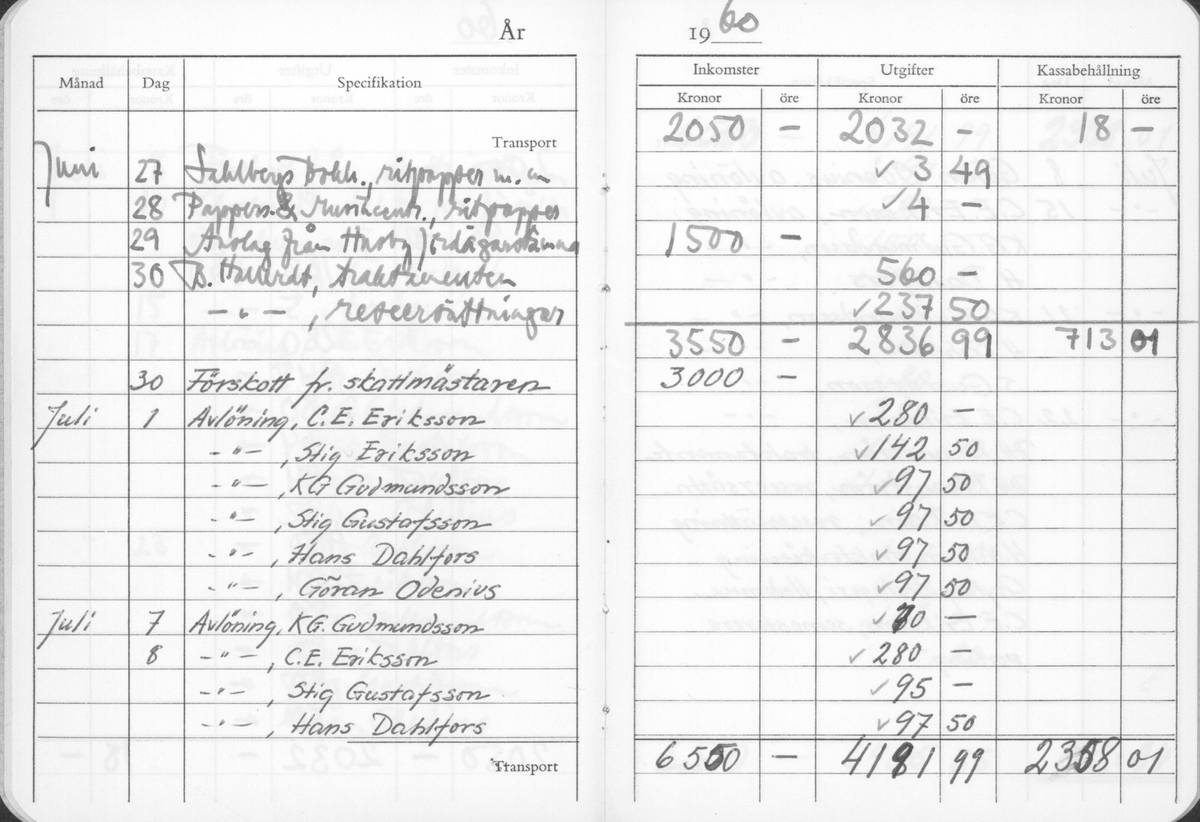 År 1960
Månad Dag Specifikation Inkomster Utgifter Kassabehållning
Kronor öre Kronor öre Kronor öre
Transport 2050 — 2032 — 18 —
Juni 27 Sahlbergs Bokh., ritpapper m.m ✓ 3 49
28 Pappers & Musikcentr., ritpapper ✓ 4 —
29 Anslag från Husby 1500 —
30 B. traktamenten 560 —
—"—, reseersättningar ✓ 237 50
3550 — 2836 99 713 01
30 Förskott fr. skattmästaren 3000 —
Juli 1 Avlöning, C.E. Eriksson ✓ 280 —
—"—, Stig Eriksson ✓ 142 50
—"—, KG Gudmundsson ✓ 97 50
—"—, Stig Gustafsson ✓ 97 50
—"—, Hans Dahlfors ✓ 97 50
—"—, Göran Odenius ✓ 97 50
Juli 7 Avlöning, KG. Gudmundsson ✓ 70 —
8 —"—, C.E. Eriksson ✓ 280 —
—"—, Stig Gustafsson ✓ 95 —
—"—, Hans Dahlfors ✓ 97 50
Transport 6550 — 4191 99 2358 01